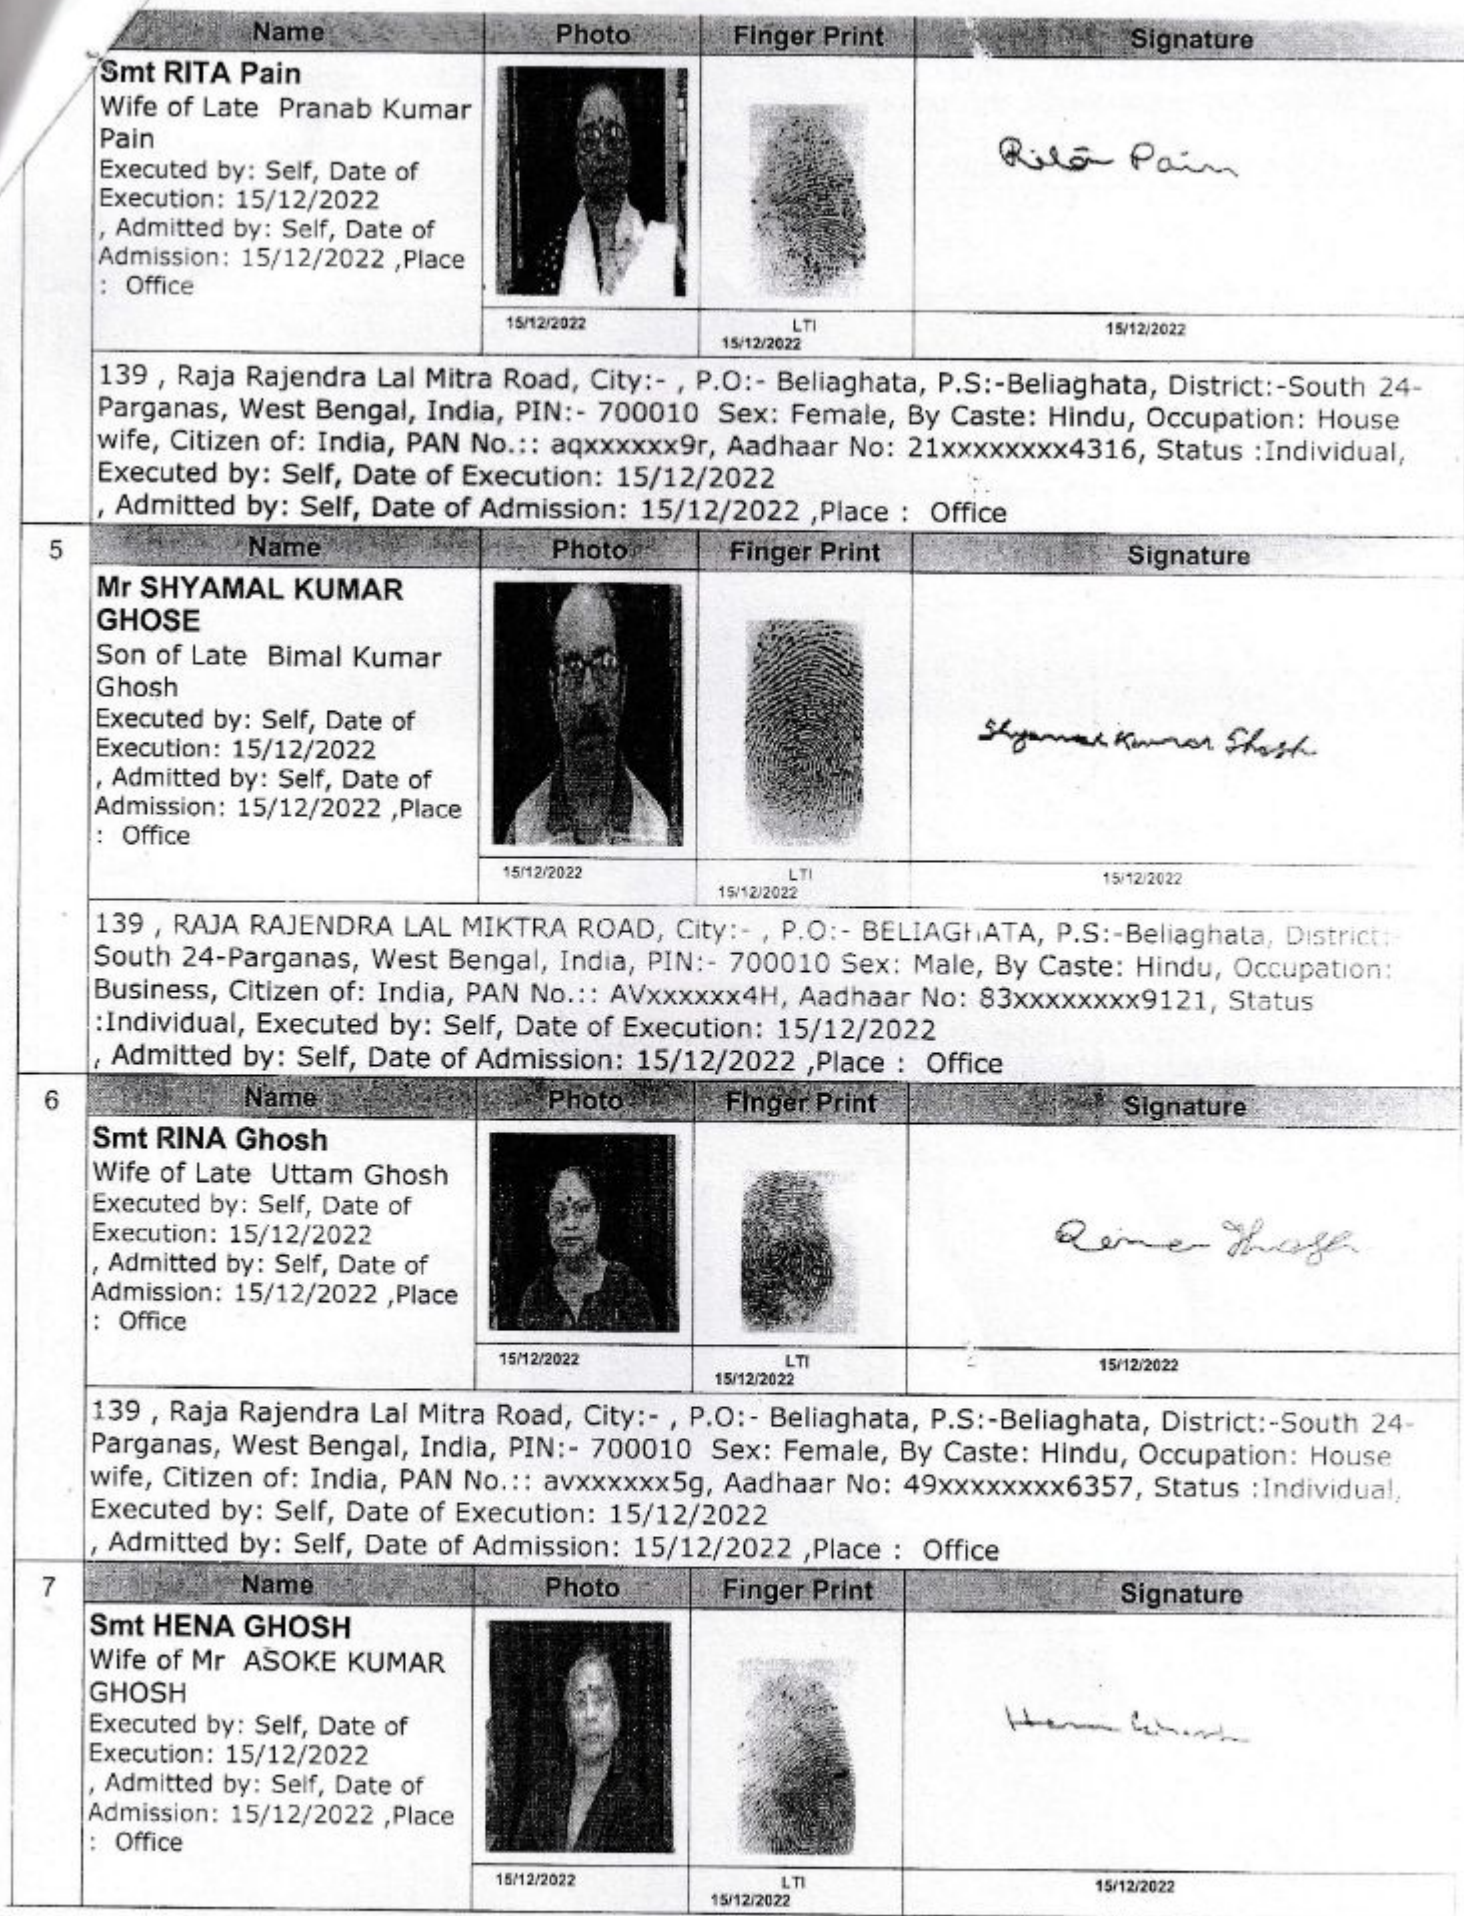 Name Photo Finger Print Signature
Smt RITA Pain
Wife of Late Pranab Kumar
Pain
Executed by: Self, Date of
Execution: 15/12/2022
, Admitted by: Self, Date of
Admission: 15/12/2022 ,Place
: Office
Rita Pain
15/12/2022 LTI 15/12/2022
15/12/2022
139 , Raja Rajendra Lal Mitra Road, City:- , P.O:- Beliaghata, P.S:-Beliaghata, District:-South 24-
Parganas, West Bengal, India, PIN:- 700010 Sex: Female, By Caste: Hindu, Occupation: House
wife, Citizen of: India, PAN No.:: aqxxxxxx9r, Aadhaar No: 21xxxxxxxx4316, Status :Individual,
Executed by: Self, Date of Execution: 15/12/2022
, Admitted by: Self, Date of Admission: 15/12/2022 ,Place : Office
5 Name Photo Finger Print Signature
Mr SHYAMAL KUMAR
GHOSE
Son of Late Bimal Kumar
Ghosh
Executed by: Self, Date of
Execution: 15/12/2022
, Admitted by: Self, Date of
Admission: 15/12/2022 ,Place
: Office
Shyamal Kumar Ghosh
15/12/2022 LTI 15/12/2022
15/12/2022
139 , RAJA RAJENDRA LAL MIKTRA ROAD, City:- , P.O:- BELIAGHATA, P.S:-Beliaghata, District:-
South 24-Parganas, West Bengal, India, PIN:- 700010 Sex: Male, By Caste: Hindu, Occupation:
Business, Citizen of: India, PAN No.:: AVxxxxxx4H, Aadhaar No: 83xxxxxxxx9121, Status
:Individual, Executed by: Self, Date of Execution: 15/12/2022
, Admitted by: Self, Date of Admission: 15/12/2022 ,Place : Office
6 Name Photo Finger Print Signature
Smt RINA Ghosh
Wife of Late Uttam Ghosh
Executed by: Self, Date of
Execution: 15/12/2022
, Admitted by: Self, Date of
Admission: 15/12/2022 ,Place
: Office
Rina Ghosh
15/12/2022 LTI 15/12/2022
15/12/2022
139 , Raja Rajendra Lal Mitra Road, City:- , P.O:- Beliaghata, P.S:-Beliaghata, District:-South 24-
Parganas, West Bengal, India, PIN:- 700010 Sex: Female, By Caste: Hindu, Occupation: House
wife, Citizen of: India, PAN No.:: avxxxxxx5g, Aadhaar No: 49xxxxxxxx6357, Status :Individual,
Executed by: Self, Date of Execution: 15/12/2022
, Admitted by: Self, Date of Admission: 15/12/2022 ,Place : Office
7 Name Photo Finger Print Signature
Smt HENA GHOSH
Wife of Mr ASOKE KUMAR
GHOSH
Executed by: Self, Date of
Execution: 15/12/2022
, Admitted by: Self, Date of
Admission: 15/12/2022 ,Place
: Office
Hena Ghosh
15/12/2022 LTI 15/12/2022
15/12/2022